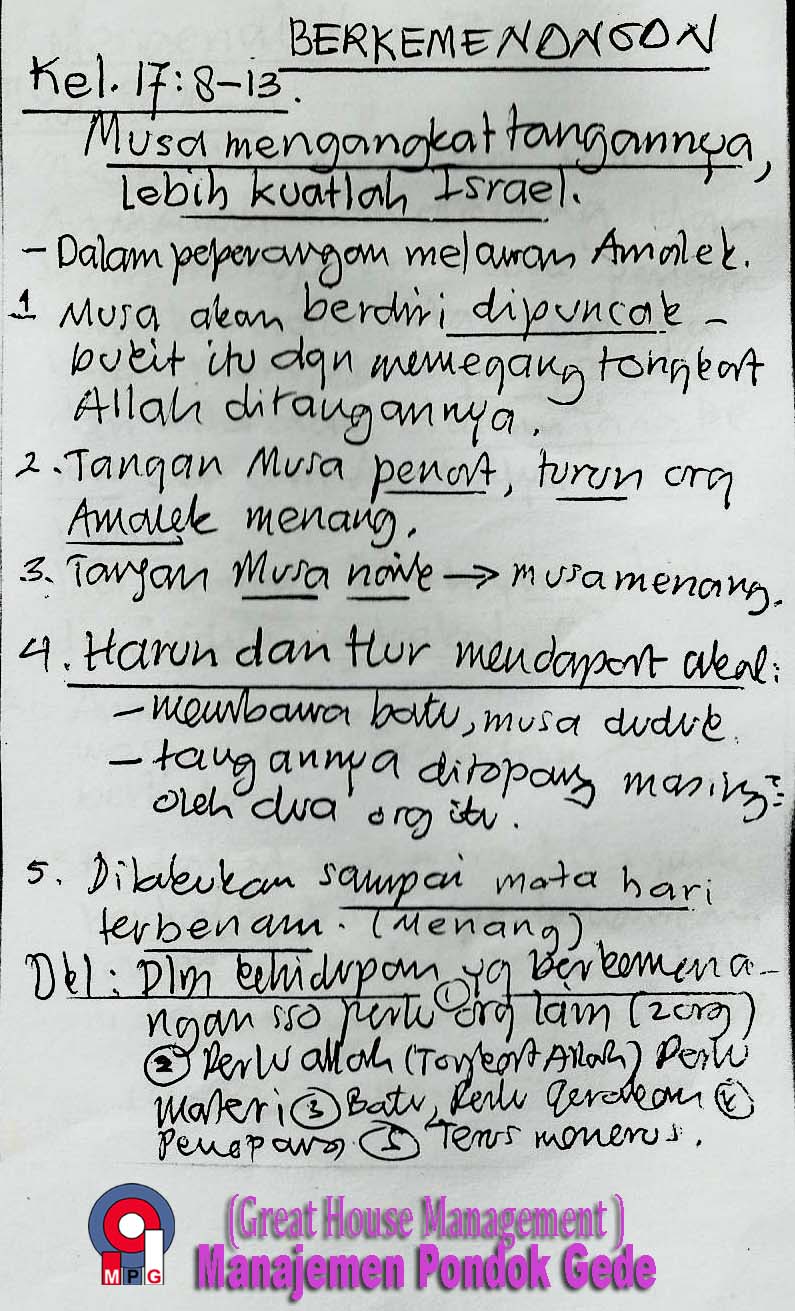 BERKEMENANGAN
Kel. 17:8-13.
Musa mengangkat tangannya,
Lebih kuatlah Israel.
- Dalam peperangan melawan Amalek.
1 Musa akan berdiri dipuncak -
bukit itu dgn memegang tongkat
Allah ditangannya.
2. Tangan Musa penat, turun org
Amalek menang.
3. Tangan Musa naik → musa menang.
4. Harun dan Hur mendapat akal:
- membawa batu, musa duduk.
- tangannya ditopang masing2
oleh dua org itu.
5. Dilakukan sampai mata hari
terbenam. (Menang)
Dkl: Dlm kehidupan yg berkemena-
ngan sso perlu ① org lain (2 org)
② Perlu allah (Tongkat Allah) Perlu
Materi ③ Batu, Perlu Gerakan ④
Penopang ⑤ Terus menerus.
(Great House Management )
MPG
Manajemen Pondok Gede